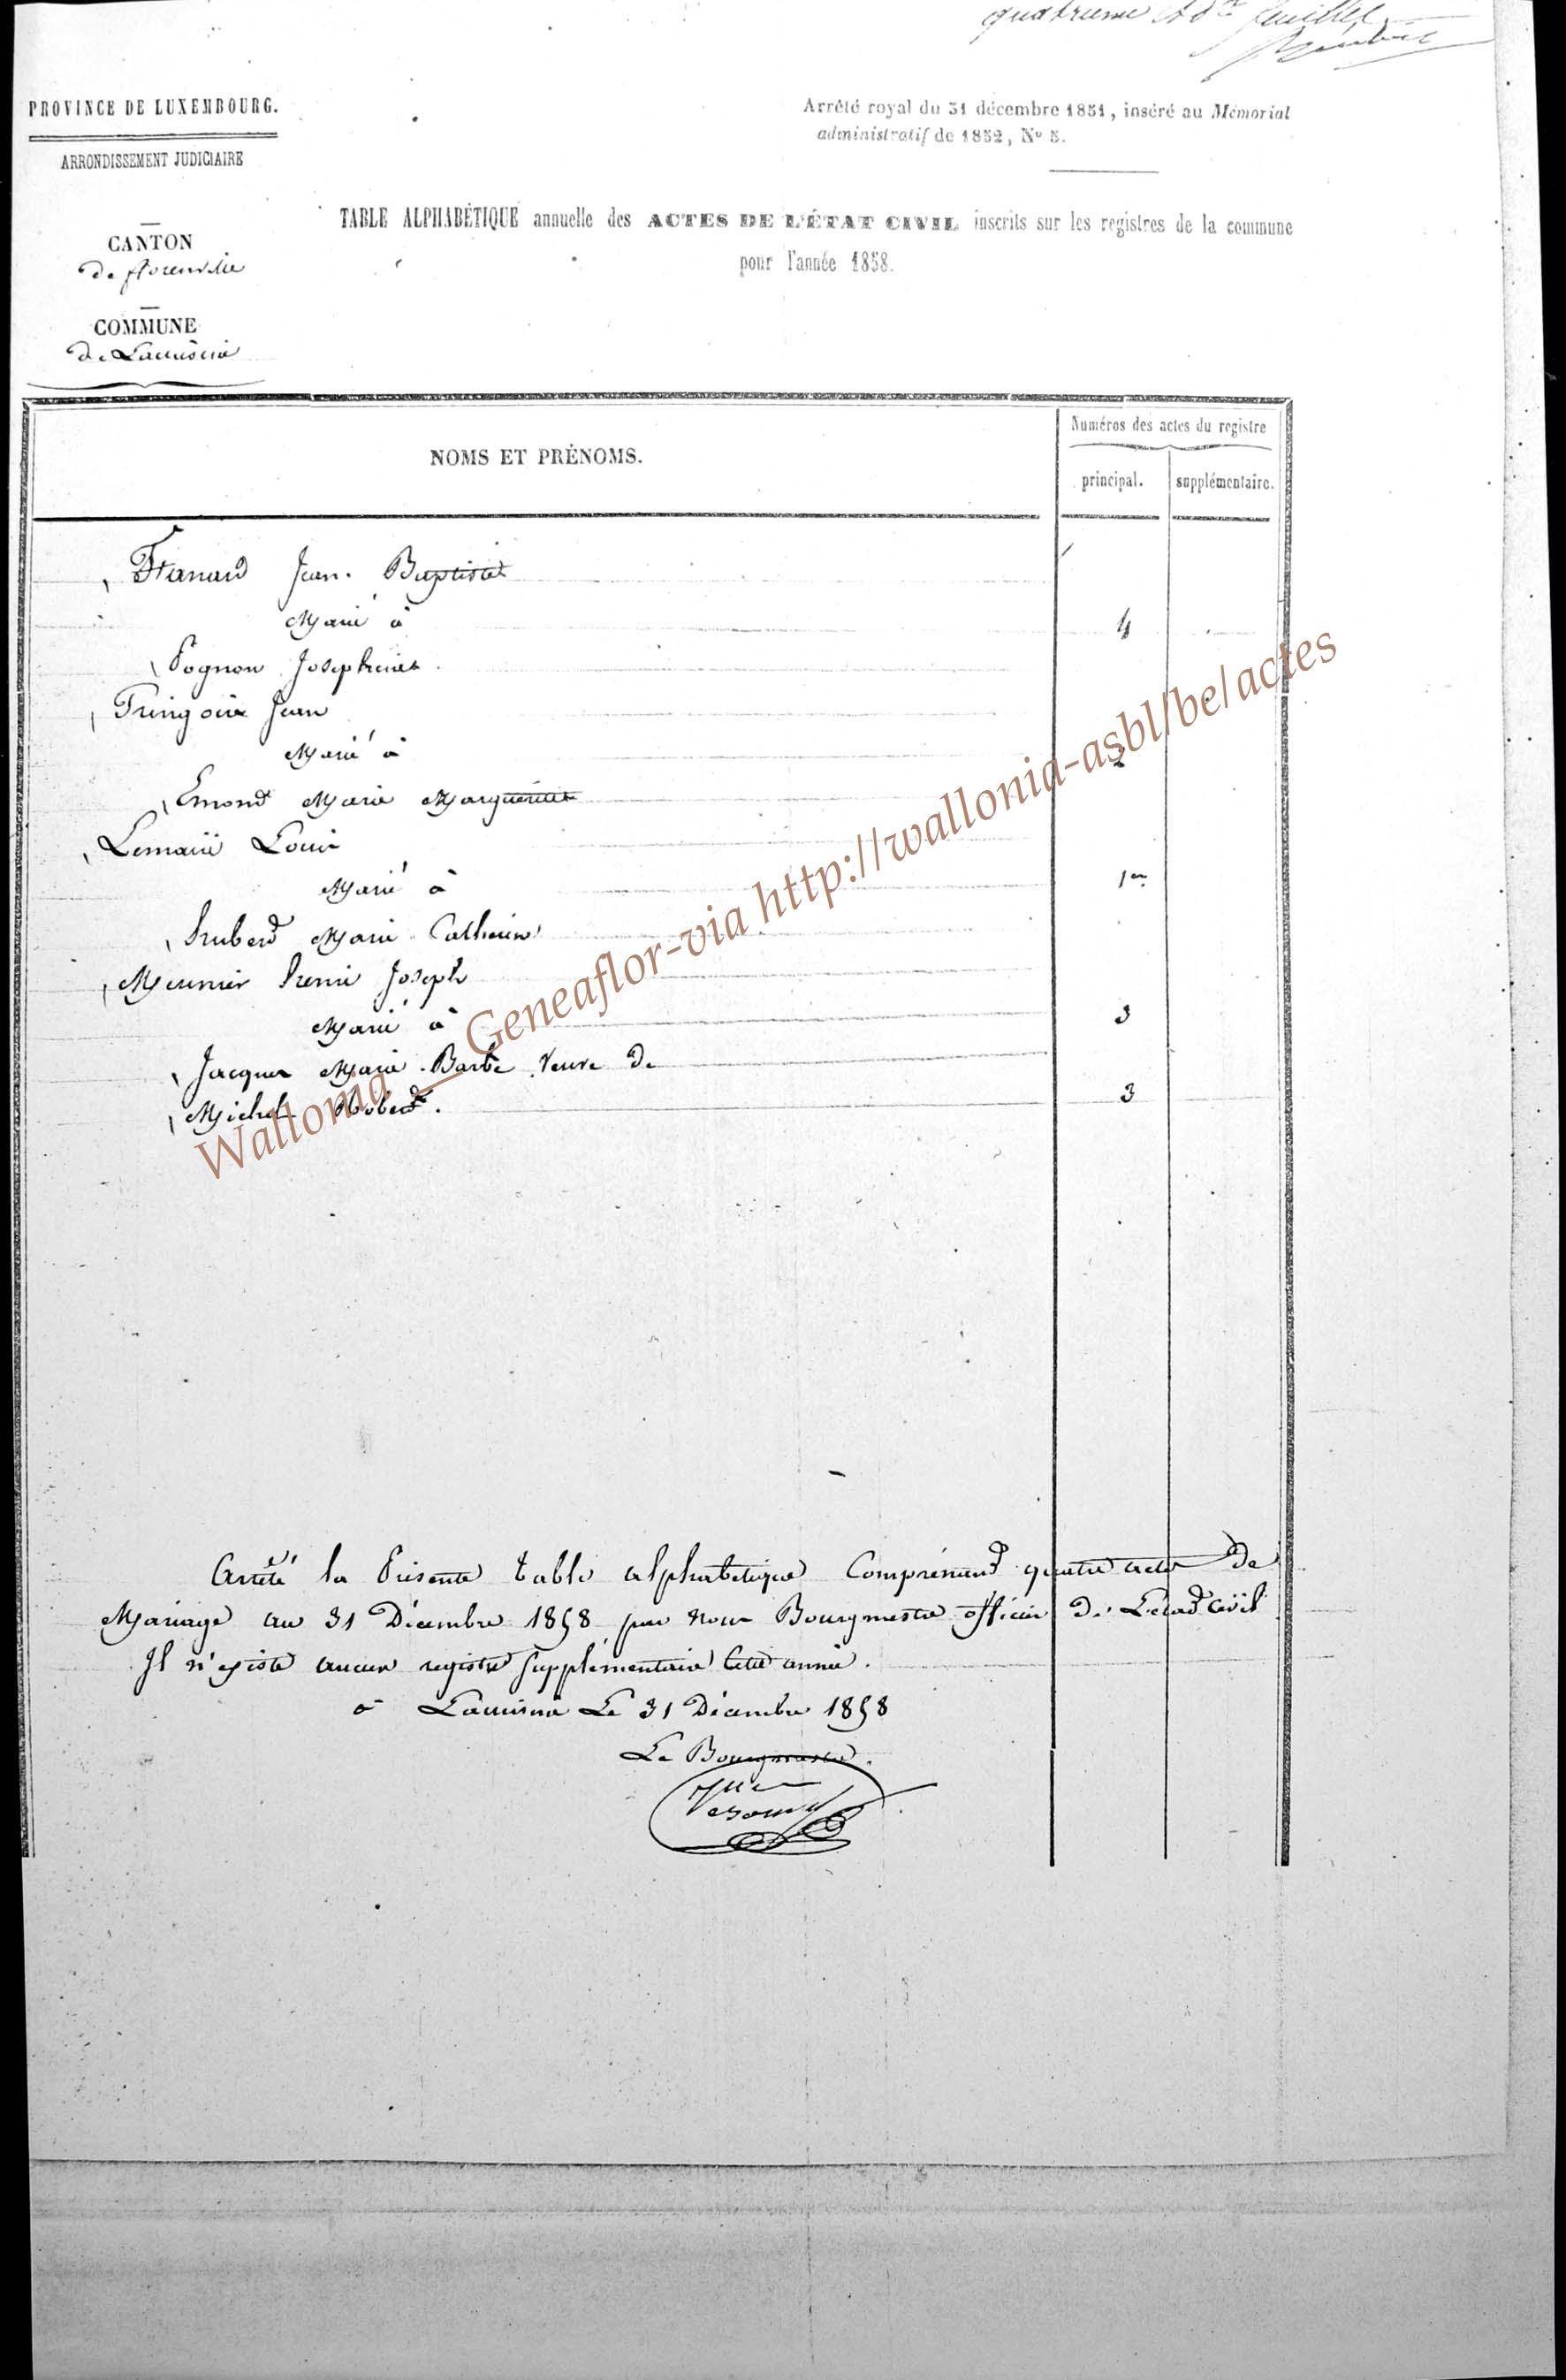 quatrième et dr feuillet
PROVINCE DE LUXEMBOURG.
Arrêté royal du 31 décembre 1851, inséré au Mémorial
administratif de 1852, No 5.
ARRONDISSEMENT JUDICIAIRE
TABLE ALPHABÉTIQUE annuelle des ACTES DE L'ÉTAT CIVIL inscrits sur les registres de la commune
pour l'année 1858.
CANTON
de florenville
COMMUNE
de Lacuisine
NOMS ET PRÉNOMS.
Numéros des actes du registre
principal. supplémentaire.
Jean Baptiste
Marié à 4
Pognon Josephine
Jean
Marié à 2
Emond Marie Marguerite
Lemaire Louis
Marié à 1er
hubert Marie Catherine
Meunier henri Joseph
Marié à 3
Jacques Marie Barbe Veuve de
Michel Robert. 3
Arrêté la Présente table alphabétique Comprenant quatre acte de
Mariage au 31 Décembre 1858 par nous Bourgmestre officier de L'etat Civil
Il n'existe aucun registre supplémentaire Cette année.
à Lacuisine Le 31 Décembre 1858
Le Bourgmestre.
Wallonia - Geneaflor-via http://wallonia-asbl/be/actes